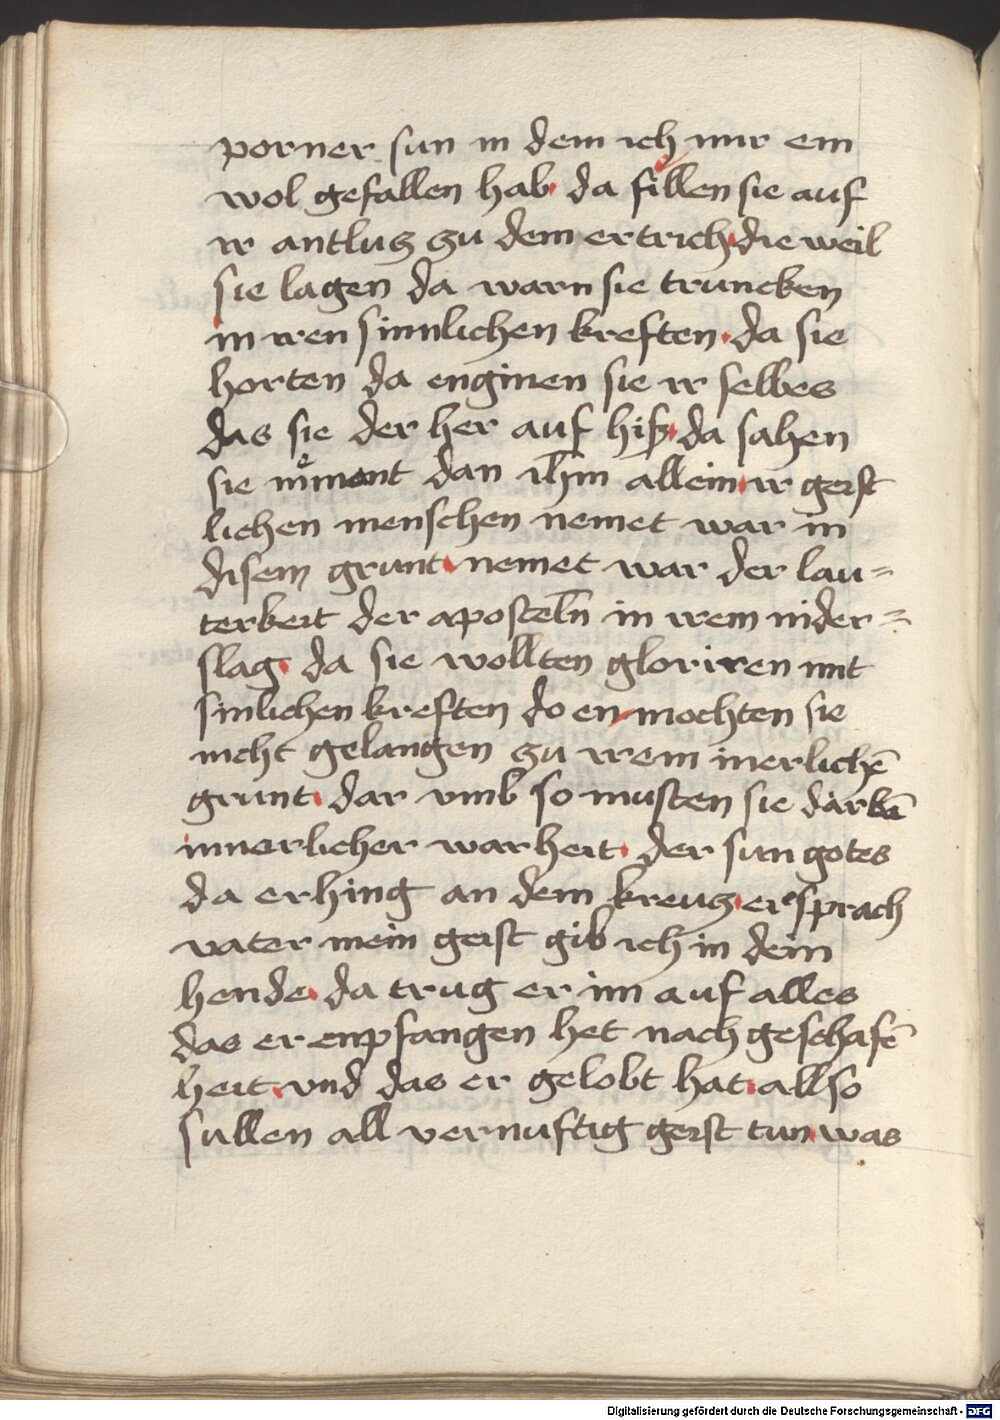 porner sun in dem ich mir ein
wol gefallen hab da fillen sie auf
ir antlucz zu dem ertrich die weil
sie lagen da warn sie truncken
in iren sinnlichen kreften da sie
horten da enginen sie ir selbes
das sie der her auf hiß da sahen
sie nͦmant dan ihm̄ allein ir geist
lichen menschen nemet war in
disem grunt nemet war der lau=
terkeit der aposteln̄ in irem nider=
slag da sie wollten gloriren mit
sinlichen kreften do en mochten sie
nicht gelangen zu irem inerlichē
grunt dar vmb so musten sie darbē
innerlicher warheit der sun gotes
da er hing an dem kreuz er sprach
vater mein geist gib ich in dein
hende da trug er im auf alles
das er enpfangen het nach geschafē
heit vnd das er gelobt hat allso
sullen all vernuftig geist tun was
Digitalisierung gefördert durch die Deutsche Forschungsgemeinschaft - DFG